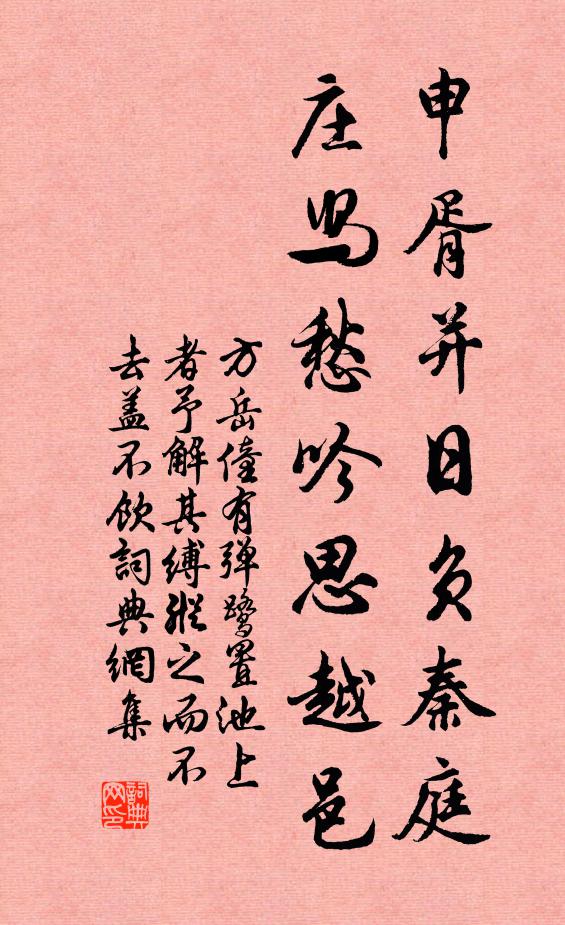 申胥并日负秦庭
庄舄愁吟思越邑
方岳僮有弹鹭置池上
者予解其缚縱之而不
去盖不飲詞典網集
詞典网印